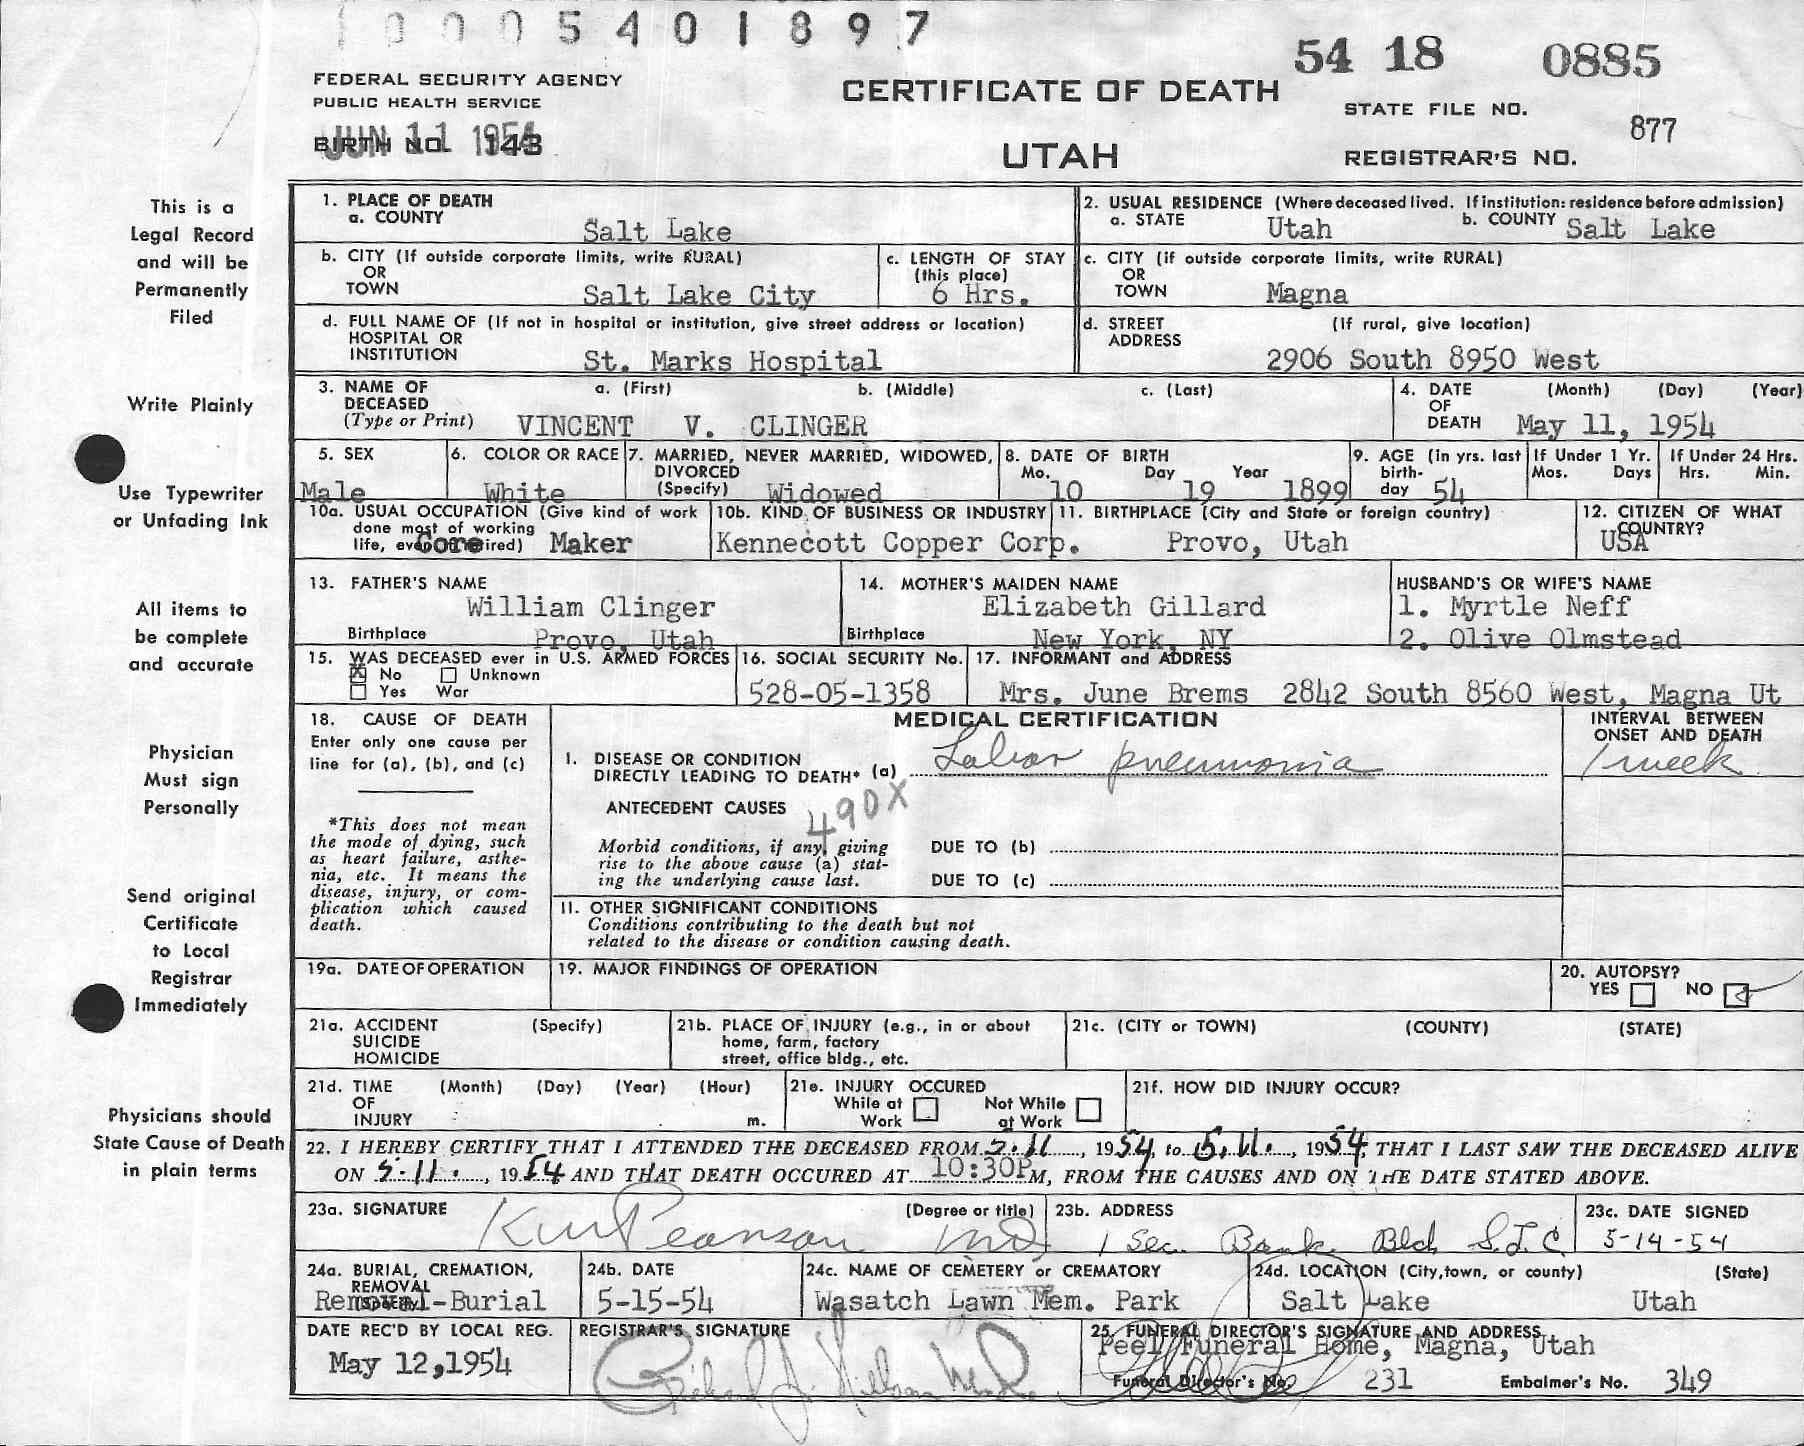 10005401897
FEDERAL SECURITY AGENCY
PUBLIC HEALTH SERVICE
BIRTH NO. 143
JUN 11 1954
CERTIFICATE OF DEATH
UTAH
54 18 0885
STATE FILE NO.
877
REGISTRAR'S NO.
This is a
Legal Record
and will be
Permanently
Filed
Write Plainly
Use Typewriter
or Unfading Ink
All items to
be complete
and accurate
Physician
Must sign
Personally
Send original
Certificate
to Local
Registrar
Immediately
Physicians should
State Cause of Death
in plain terms
1. PLACE OF DEATH
a. COUNTY
Salt Lake
2. USUAL RESIDENCE (Where deceased lived. If institution: residence before admission)
a. STATE Utah b. COUNTY Salt Lake
b. CITY (If outside corporate limits, write RURAL)
OR
TOWN
Salt Lake City
c. LENGTH OF STAY
(this place)
6 Hrs.
c. CITY (if outside corporate limits, write RURAL)
OR
TOWN Magna
d. FULL NAME OF (If not in hospital or institution, give street address or location)
HOSPITAL OR
INSTITUTION
St. Marks Hospital
d. STREET (If rural, give location)
ADDRESS
2906 South 8950 West
3. NAME OF
DECEASED
(Type or Print)
a. (First) b. (Middle) c. (Last)
VINCENT V. CLINGER
4. DATE (Month) (Day) (Year)
OF
DEATH May 11, 1954
5. SEX
Male
6. COLOR OR RACE
White
7. MARRIED, NEVER MARRIED, WIDOWED,
DIVORCED
(Specify) Widowed
8. DATE OF BIRTH
Mo. Day Year
10 19 1899
9. AGE (In yrs. last
birth-
day 54
If Under 1 Yr.
Mos. Days
If Under 24 Hrs.
Hrs. Min.
10a. USUAL OCCUPATION (Give kind of work
done most of working
life, even if retired)
Core Maker
10b. KIND OF BUSINESS OR INDUSTRY
Kennecott Copper Corp.
11. BIRTHPLACE (City and State or foreign country)
Provo, Utah
12. CITIZEN OF WHAT
COUNTRY?
USA
13. FATHER'S NAME
William Clinger
Birthplace Provo, Utah
14. MOTHER'S MAIDEN NAME
Elizabeth Gillard
Birthplace New York, NY
HUSBAND'S OR WIFE'S NAME
1. Myrtle Neff
2. Olive Olmstead
15. WAS DECEASED ever in U.S. ARMED FORCES
X No Unknown
Yes War
16. SOCIAL SECURITY No.
528-05-1358
17. INFORMANT and ADDRESS
Mrs. June Brems 2842 South 8560 West, Magna Ut
18. CAUSE OF DEATH
Enter only one cause per
line for (a), (b), and (c)
*This does not mean
the mode of dying, such
as heart failure, asthe-
nia, etc. It means the
disease, injury, or com-
plication which caused
death.
MEDICAL CERTIFICATION
INTERVAL BETWEEN
ONSET AND DEATH
I. DISEASE OR CONDITION
DIRECTLY LEADING TO DEATH* (a) Lobar pneumonia
1 week
ANTECEDENT CAUSES
490X
Morbid conditions, if any, giving
rise to the above cause (a) stat-
ing the underlying cause last.
DUE TO (b)
DUE TO (c)
II. OTHER SIGNIFICANT CONDITIONS
Conditions contributing to the death but not
related to the disease or condition causing death.
19a. DATE OF OPERATION
19. MAJOR FINDINGS OF OPERATION
20. AUTOPSY?
YES NO
21a. ACCIDENT (Specify)
SUICIDE
HOMICIDE
21b. PLACE OF INJURY (e.g., in or about
home, farm, factory
street, office bldg., etc.
21c. (CITY or TOWN) (COUNTY) (STATE)
21d. TIME (Month) (Day) (Year) (Hour)
OF
INJURY m.
21e. INJURY OCCURED
While at Work Not While at Work
21f. HOW DID INJURY OCCUR?
22. I HEREBY CERTIFY THAT I ATTENDED THE DECEASED FROM 5.11, 1954, to 5.11., 1954, THAT I LAST SAW THE DECEASED ALIVE
ON 5-11., 1954 AND THAT DEATH OCCURED AT 10:30P M, FROM THE CAUSES AND ON THE DATE STATED ABOVE.
23a. SIGNATURE (Degree or title)
Pearson MD
23b. ADDRESS
1 Sec. Bank Bld S.L.C.
23c. DATE SIGNED
5-14-54
24a. BURIAL, CREMATION,
REMOVAL
(Specify)
Removal-Burial
24b. DATE
5-15-54
24c. NAME OF CEMETERY or CREMATORY
Wasatch Lawn Mem. Park
24d. LOCATION (City, town, or county) (State)
Salt Lake Utah
DATE REC'D BY LOCAL REG.
May 12, 1954
REGISTRAR'S SIGNATURE
25. FUNERAL DIRECTOR'S SIGNATURE AND ADDRESS
Peel Funeral Home, Magna, Utah
Funeral Director's No. 231 Embalmer's No. 349